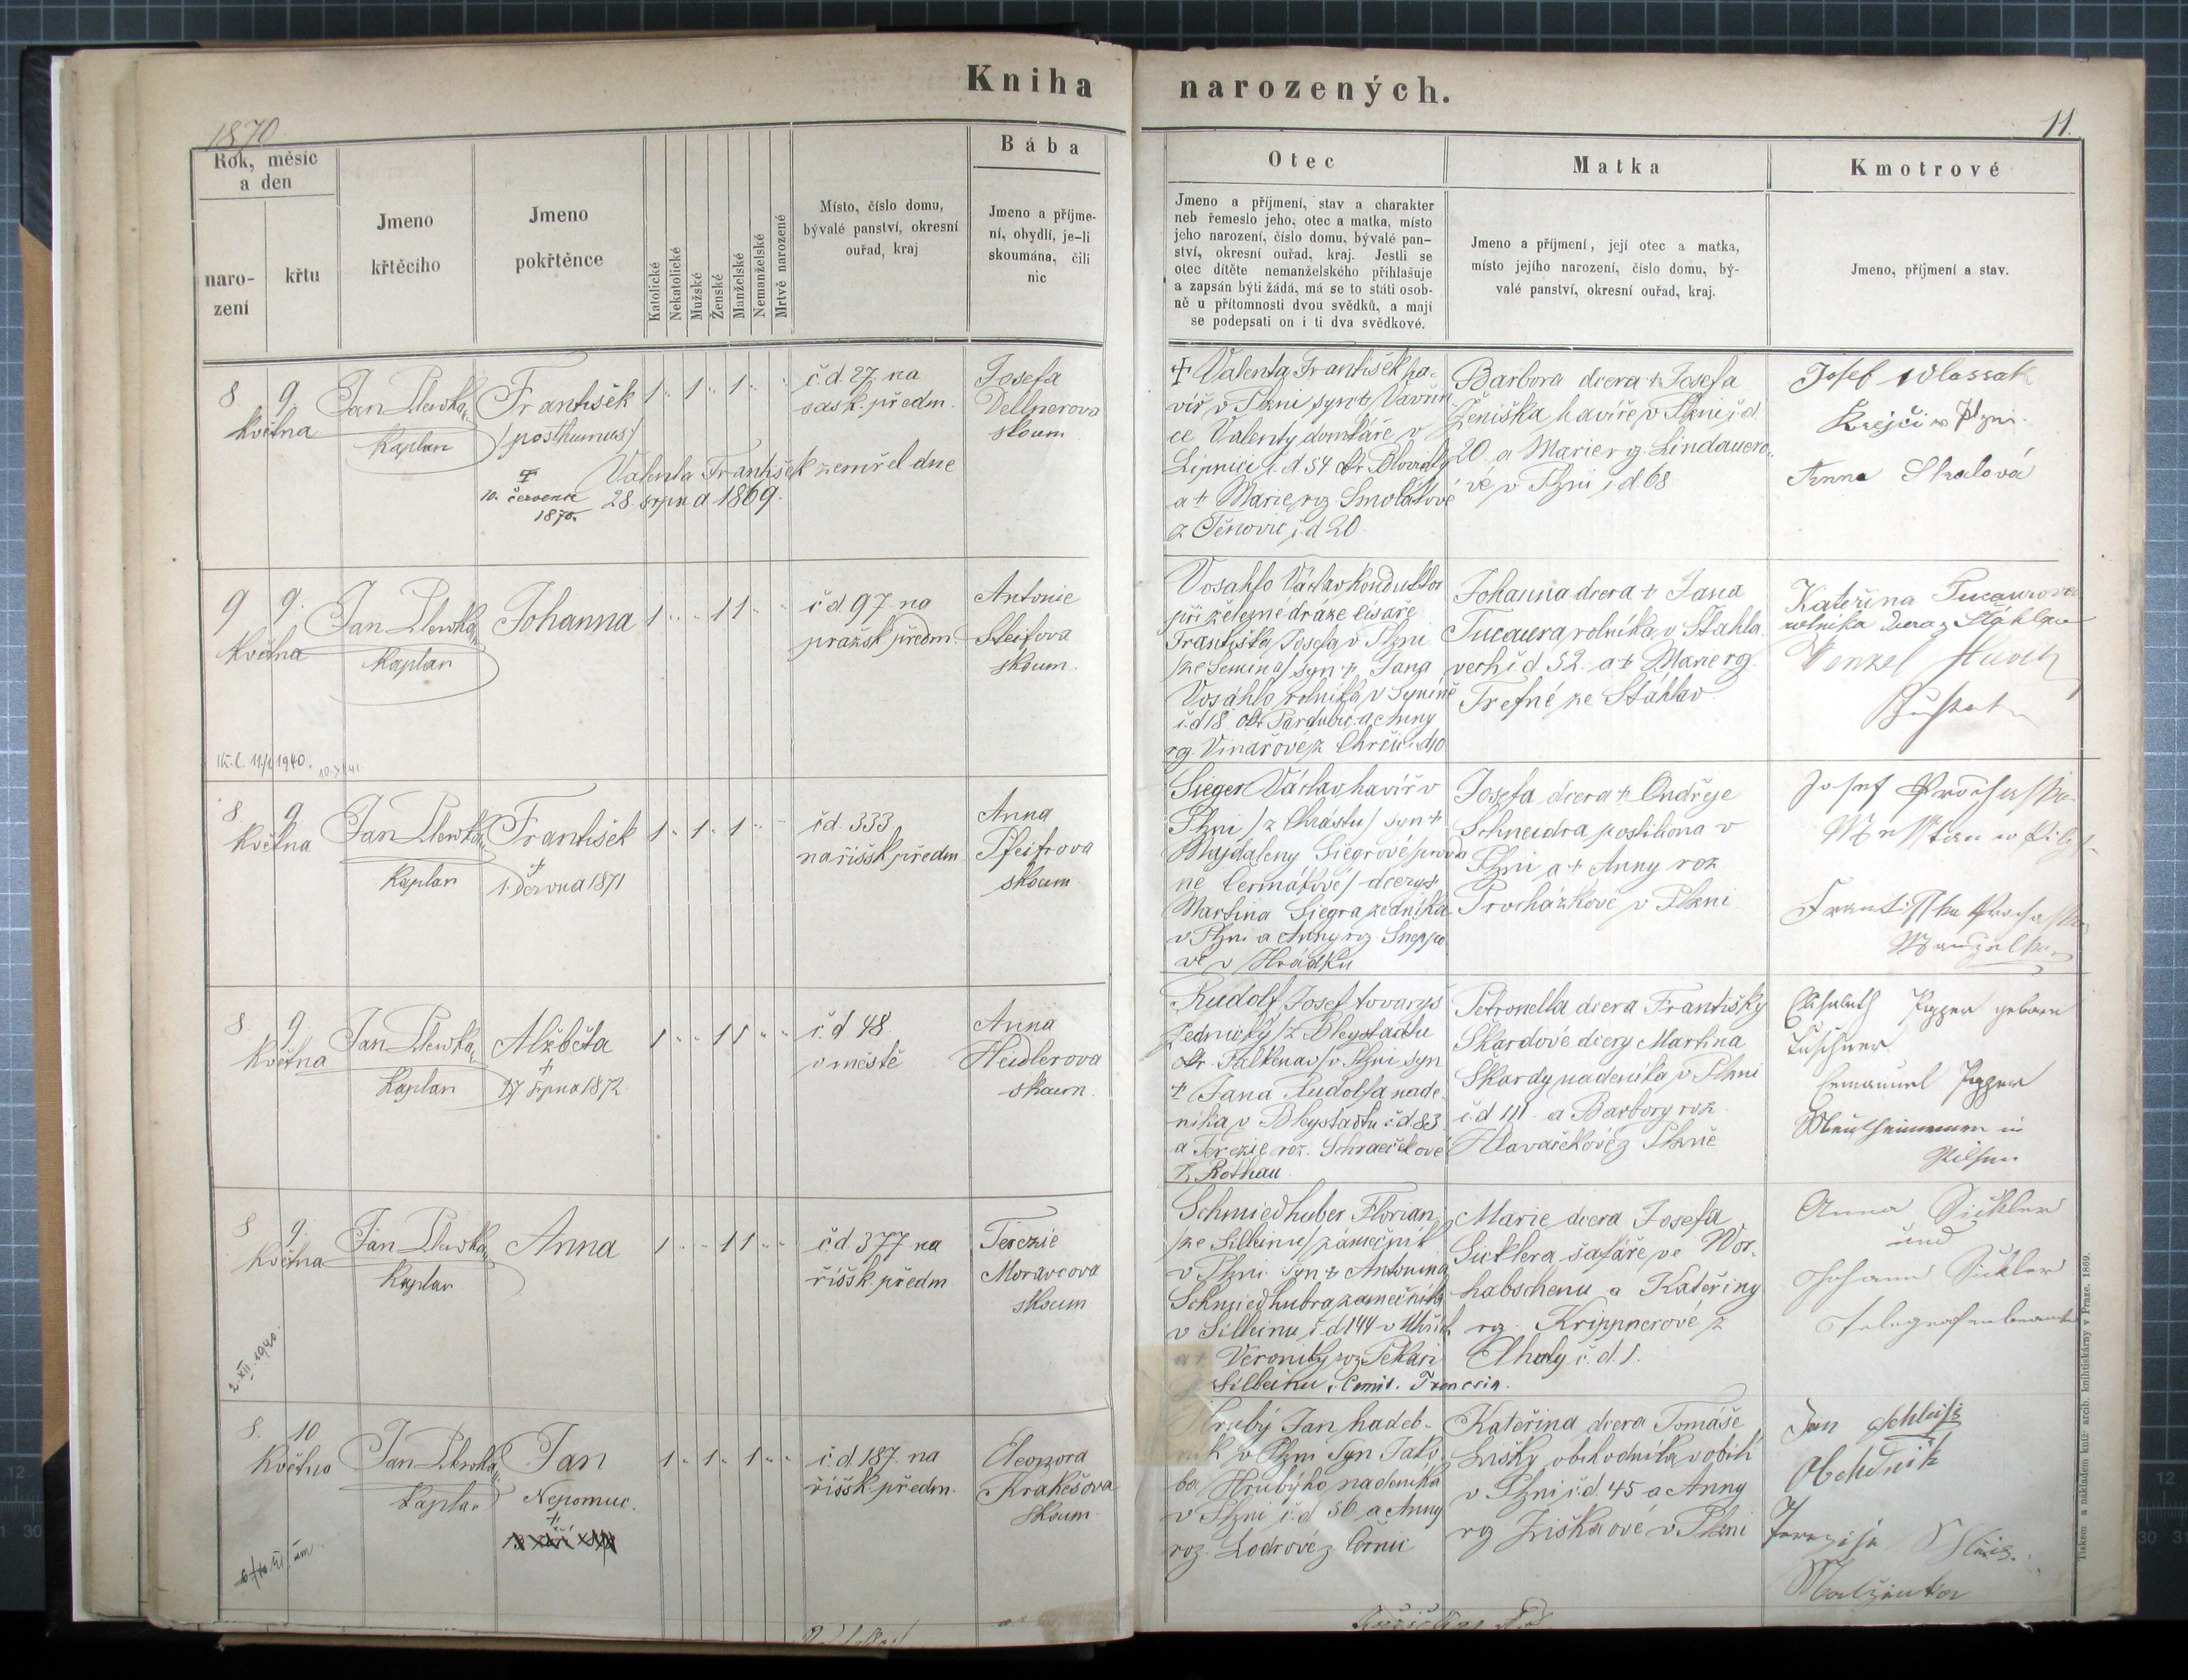 Kniha narozených.
1870
11.
Rok, měsíc
a den
naro-
zení
křtu
Jmeno
křtěcího
Jmeno
pokřtěnce
Katolické
Nekatolické
Mužské
Ženské
Manželské
Nemanželské
Mrtvě narozené
Místo, číslo domu,
bývalé panství, okresní
ouřad, kraj
Bába
Jmeno a příjme-
ní, obydlí, je-li
skoumána, čili
nic
Otec
Jmeno a příjmení, stav a charakter
neb řemeslo jeho, otec a matka, místo
jeho narození, číslo domu, bývalé pan-
ství, okresní ouřad, kraj. Jestli se
otec dítěte nemanželského přihlašuje
a zapsán býti žádá, má se to státi osob-
ně u přítomnosti dvou svědků, a mají
se podepsati on i ti dva svědkové.
Matka
Jmeno a příjmení, její otec a matka,
místo jejího narození, číslo domu, bý-
valé panství, okresní ouřad, kraj.
Kmotrové
Jmeno, příjmení a stav.
8. 9.
Května
Jan Plewka
Kaplan
František
/posthumus/
Valenta František zemřel dne
28. srpna 1869.
10. července
1870.
1 " 1 " 1 " "
č.d. 27. na
sask. předm.
Josefa
Dellnerova
skoum
† Valenta František ha-
víř v Plzni syn † Vavřin
ce Valenty domkáře v
Lipnici č.d. 54
a † Marie roz. Smolákové
z Těnovic č.d 20.
Barbora dcera † Josefa
Ženíška havíře v Plzni č.d.
20. a Marie rz. Lindauero-
vé v Plzni č.d. 68
Josef Wlassak
Krejčí w Plzni.
Anna Skalová
9 9.
Května
Jan Plewka
Kaplan
Johanna
1 " " 1 1 " "
č.d. 97. na
pražsk předm.
Antonie
Steifova
skoum.
1940.
Vosahlo Václav kondukto
při železné dráze císaře
Františka Josefa v Plzni
/ze Semína/ syn † Jana
Vosáhlo rolníka v Semíně
č.d 18 okr Pardubic a Anny
rz. Vinařové z Chrčic č.d 10
Johanna dcera † Jana
Tucauera rolníka v Stáhla
vech č.d. 52. a † Marie rz.
Trefné ze Stáhlav
Kateřina Tucaurova
rolníka dcera z Stáhlav
Wenzel
8. 9.
Května
Jan Plewka
Kaplan
František
†
1. června 1871
1 " 1 " 1 " "
č.d. 333
na říšsk předm
Anna
Pfeifrova
skoum
Sieger Václav havíř v
Plzni /z Chrástu/ syn †
Majdaleny Siegrové /provda
né Čermákové/ dcery †
Martina Siegra zedníka
v Plzni a Anny rz.
vé v Hrádku
Josefa dcera † Ondřeje
Schneidra postiliona v
Plzni a † Anny roz
Procházkové v Plzni
Josef
8 9.
Května
Jan Plewka
Kaplan
Alžběta
†
17. srpna 1872
1 " " 1 1 " "
č.d 48
v městě
Anna
Heidlerova
skoum.
Rudolf Josef tovaryš
zednický /z Bleystadtu
okr. Falkenau/ v Plzni syn
† Jana Rudolfa nade-
níka v Bleystadtu č.d. 83
a Terezie roz.
z Rothau.
Petronella dcera Františky
Škardové dcery Martina
Škardy nadeníka v Plzni
č.d 111. a Barbory roz.
Hlavačekové z Plzně
Elisabeth
Emanuel
in
Pilsen
8 9.
Května
Jan Plewka
Kaplan
Anna
1 " " 1 1 " "
č.d. 377 na
říšsk. předm
Terezie
Moravcova
skoum
2. XII. 1940.
Schmiedhuber Florian
/ze Silleinu/ zámečník
v Plzni syn † Antonína
Schmiedhubra zamečníka
v Silleinu č.d 144 v Uhřích
a † Veroniky roz. Pekári
Silleinu, Comit. Trencsin.
Marie dcera Josefa
Sicklera šafáře ve Wos-
habschenu a Kateřiny
rz. Krippnerové z
Elhoty č.d. 1.
Anna Sickler
und
Johann Sickler
Telegrafenbeamte
8. 10
Května
Jan Plewka
Kaplan
Jan
Nepomuc.
†
1 " 1 " 1 " "
č.d. 187. na
říšsk. předm.
Eleonora
Krakešova
skoum.
Hrubý Jan hadeb-
ník v Plzni syn Jako
ba Hrubýho nadeníka
v Plzni č.d 56 a Anny
roz. Lodrové z Černic
Kateřina dcera Tomáše
Lišky obchodníka v obilí
v Plzni č.d. 45 a Anny
rz Ziškaové v Plzni
Jan Schleiss
Obchodník
Manželka
Tiskem a nákladem kníž. arcib. knihtiskárny v Praze. 1869.